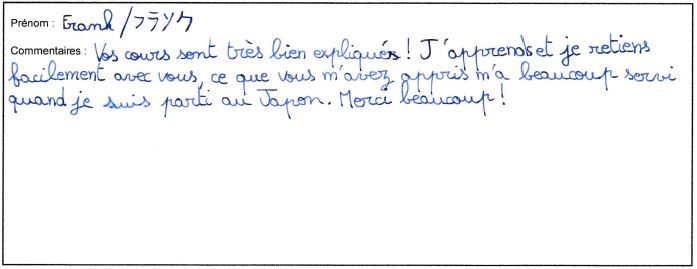 Prénom : Frank / フランク
Commentaires : Vos cours sont très bien expliqués ! J'apprends et je retiens
facilement avec vous, ce que vous m'avez appris m'a beaucoup servi
quand je suis parti au Japon. Merci beaucoup !